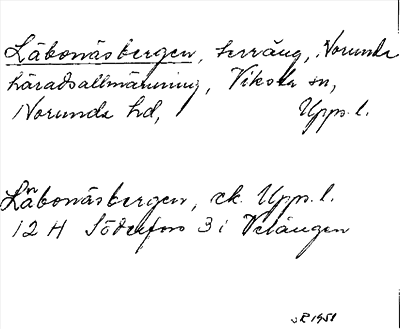 Låbonäsbergen, terräng, Norunda
häradsallmänning, Viksta sn,
Norunda hd, Upps. l.
Låbonäsbergen, ek. Upps. l.
12 H Söderfors 3 i Vetängen
1951